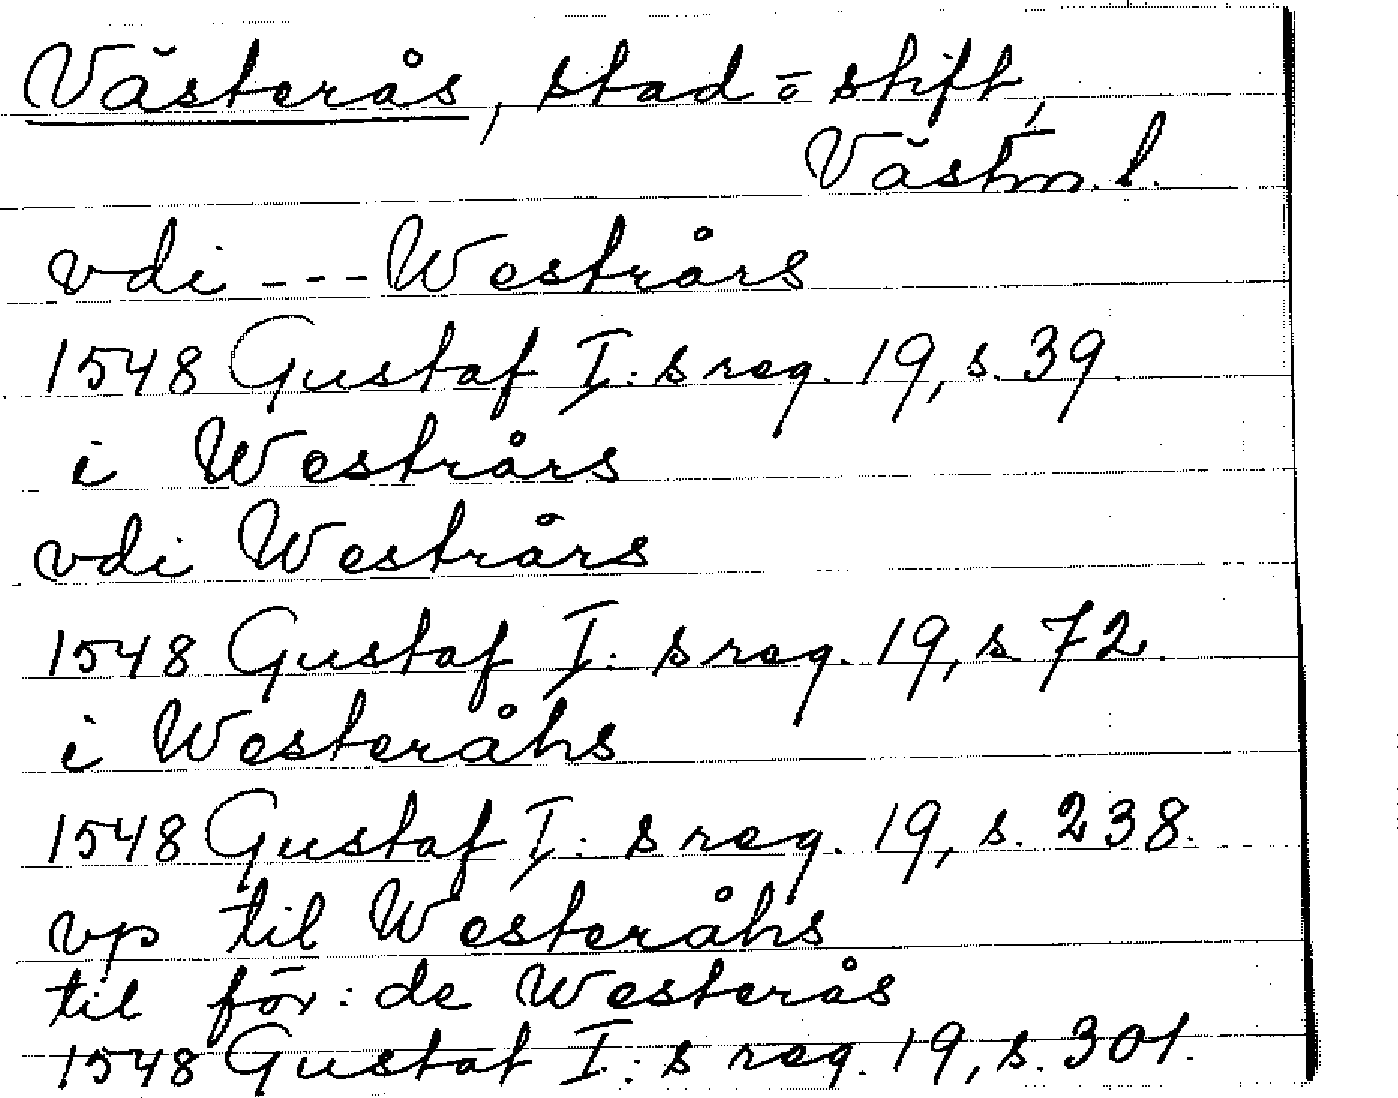 Västerås, stad o stift,
Västm. l.
vdi --- Westrårs
1548 Gustaf I:s reg. 19, s. 39.
i Westrårs
vdi Westrårs
1548 Gustaf I:s reg. 19, s. 72.
i Westeråhs
1548 Gustaf I:s reg. 19, s. 238.
vp til Westeråhs
til för:de Westerås
1548 Gustaf I:s reg. 19, s. 301.